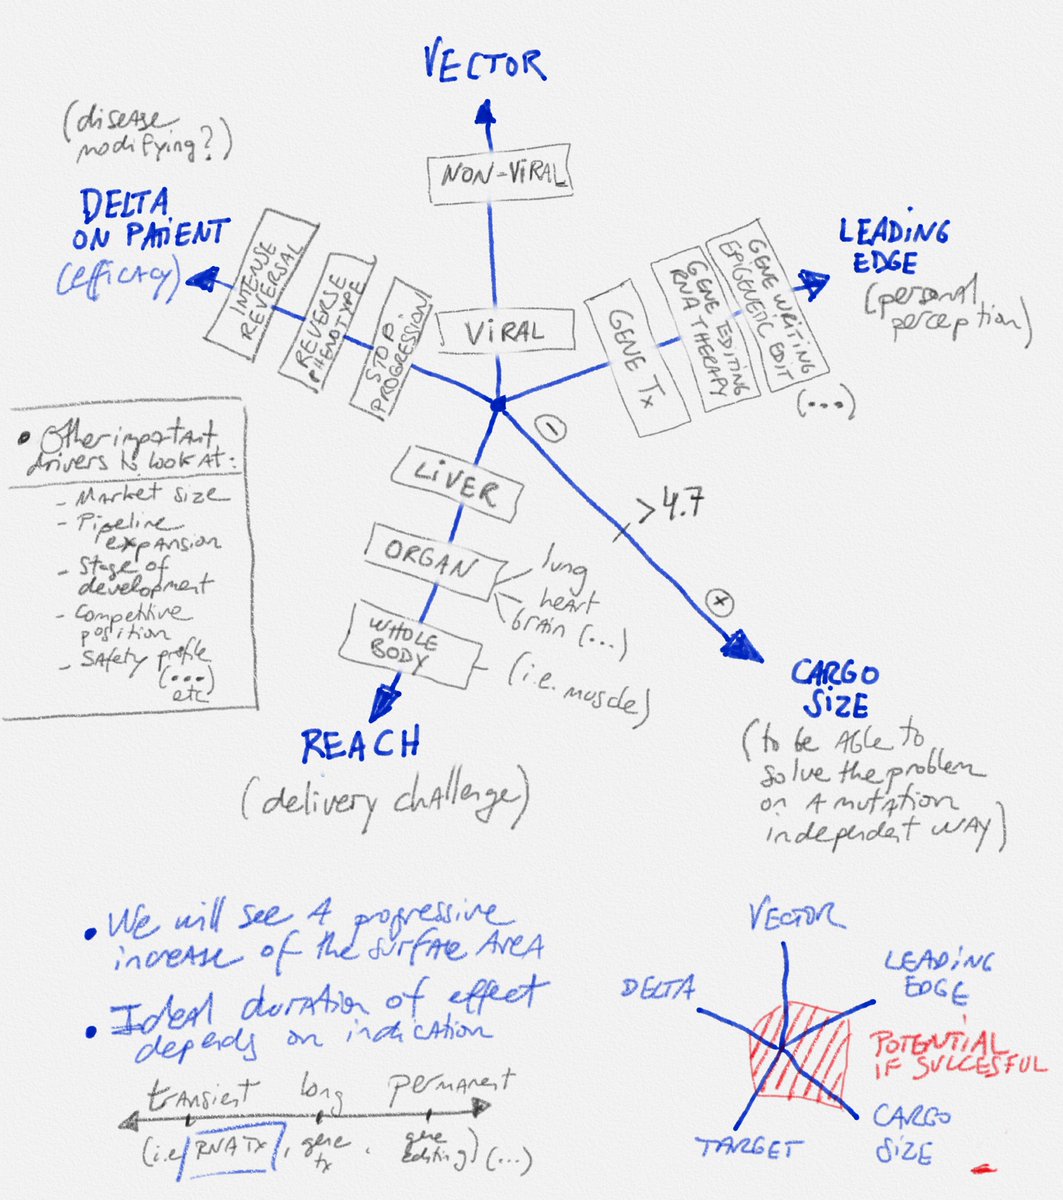 VECTOR
(disease
modifying?)
NON-VIRAL
DELTA
ON PATIENT
(efficacy)
LEADING
EDGE
(personal
perception)
INTENSE
REVERSAL
REVERSE
PHENOTYPE
STOP
PROGRESSION
VIRAL
GENE Tx
GENE EDITING
RNA THERAPY
GENE WRITING
EPIGENETIC EDIT
(...)
-
>4.7
+
LIVER
ORGAN
lung
heart
brain (...)
WHOLE
BODY
(i.e. muscle)
REACH
(delivery challenge)
CARGO
SIZE
(to be ABLE to
solve the problem
on A mutation
independent WAY)
• Other important
drivers to look at:
- Market size
- Pipeline
expansion
- Stage of
development
- Competitive
position
- Safety profile
(...
etc)
• We will see A progressive
increase of the surface AREA
• Ideal duration of effect
depends on indication
transient long permanent
(i.e RNA Tx, gene
tx, gene
editing) (...)
VECTOR
DELTA
LEADING
EDGE
POTENTIAL
IF SUCCESFUL
CARGO
SIZE
TARGET